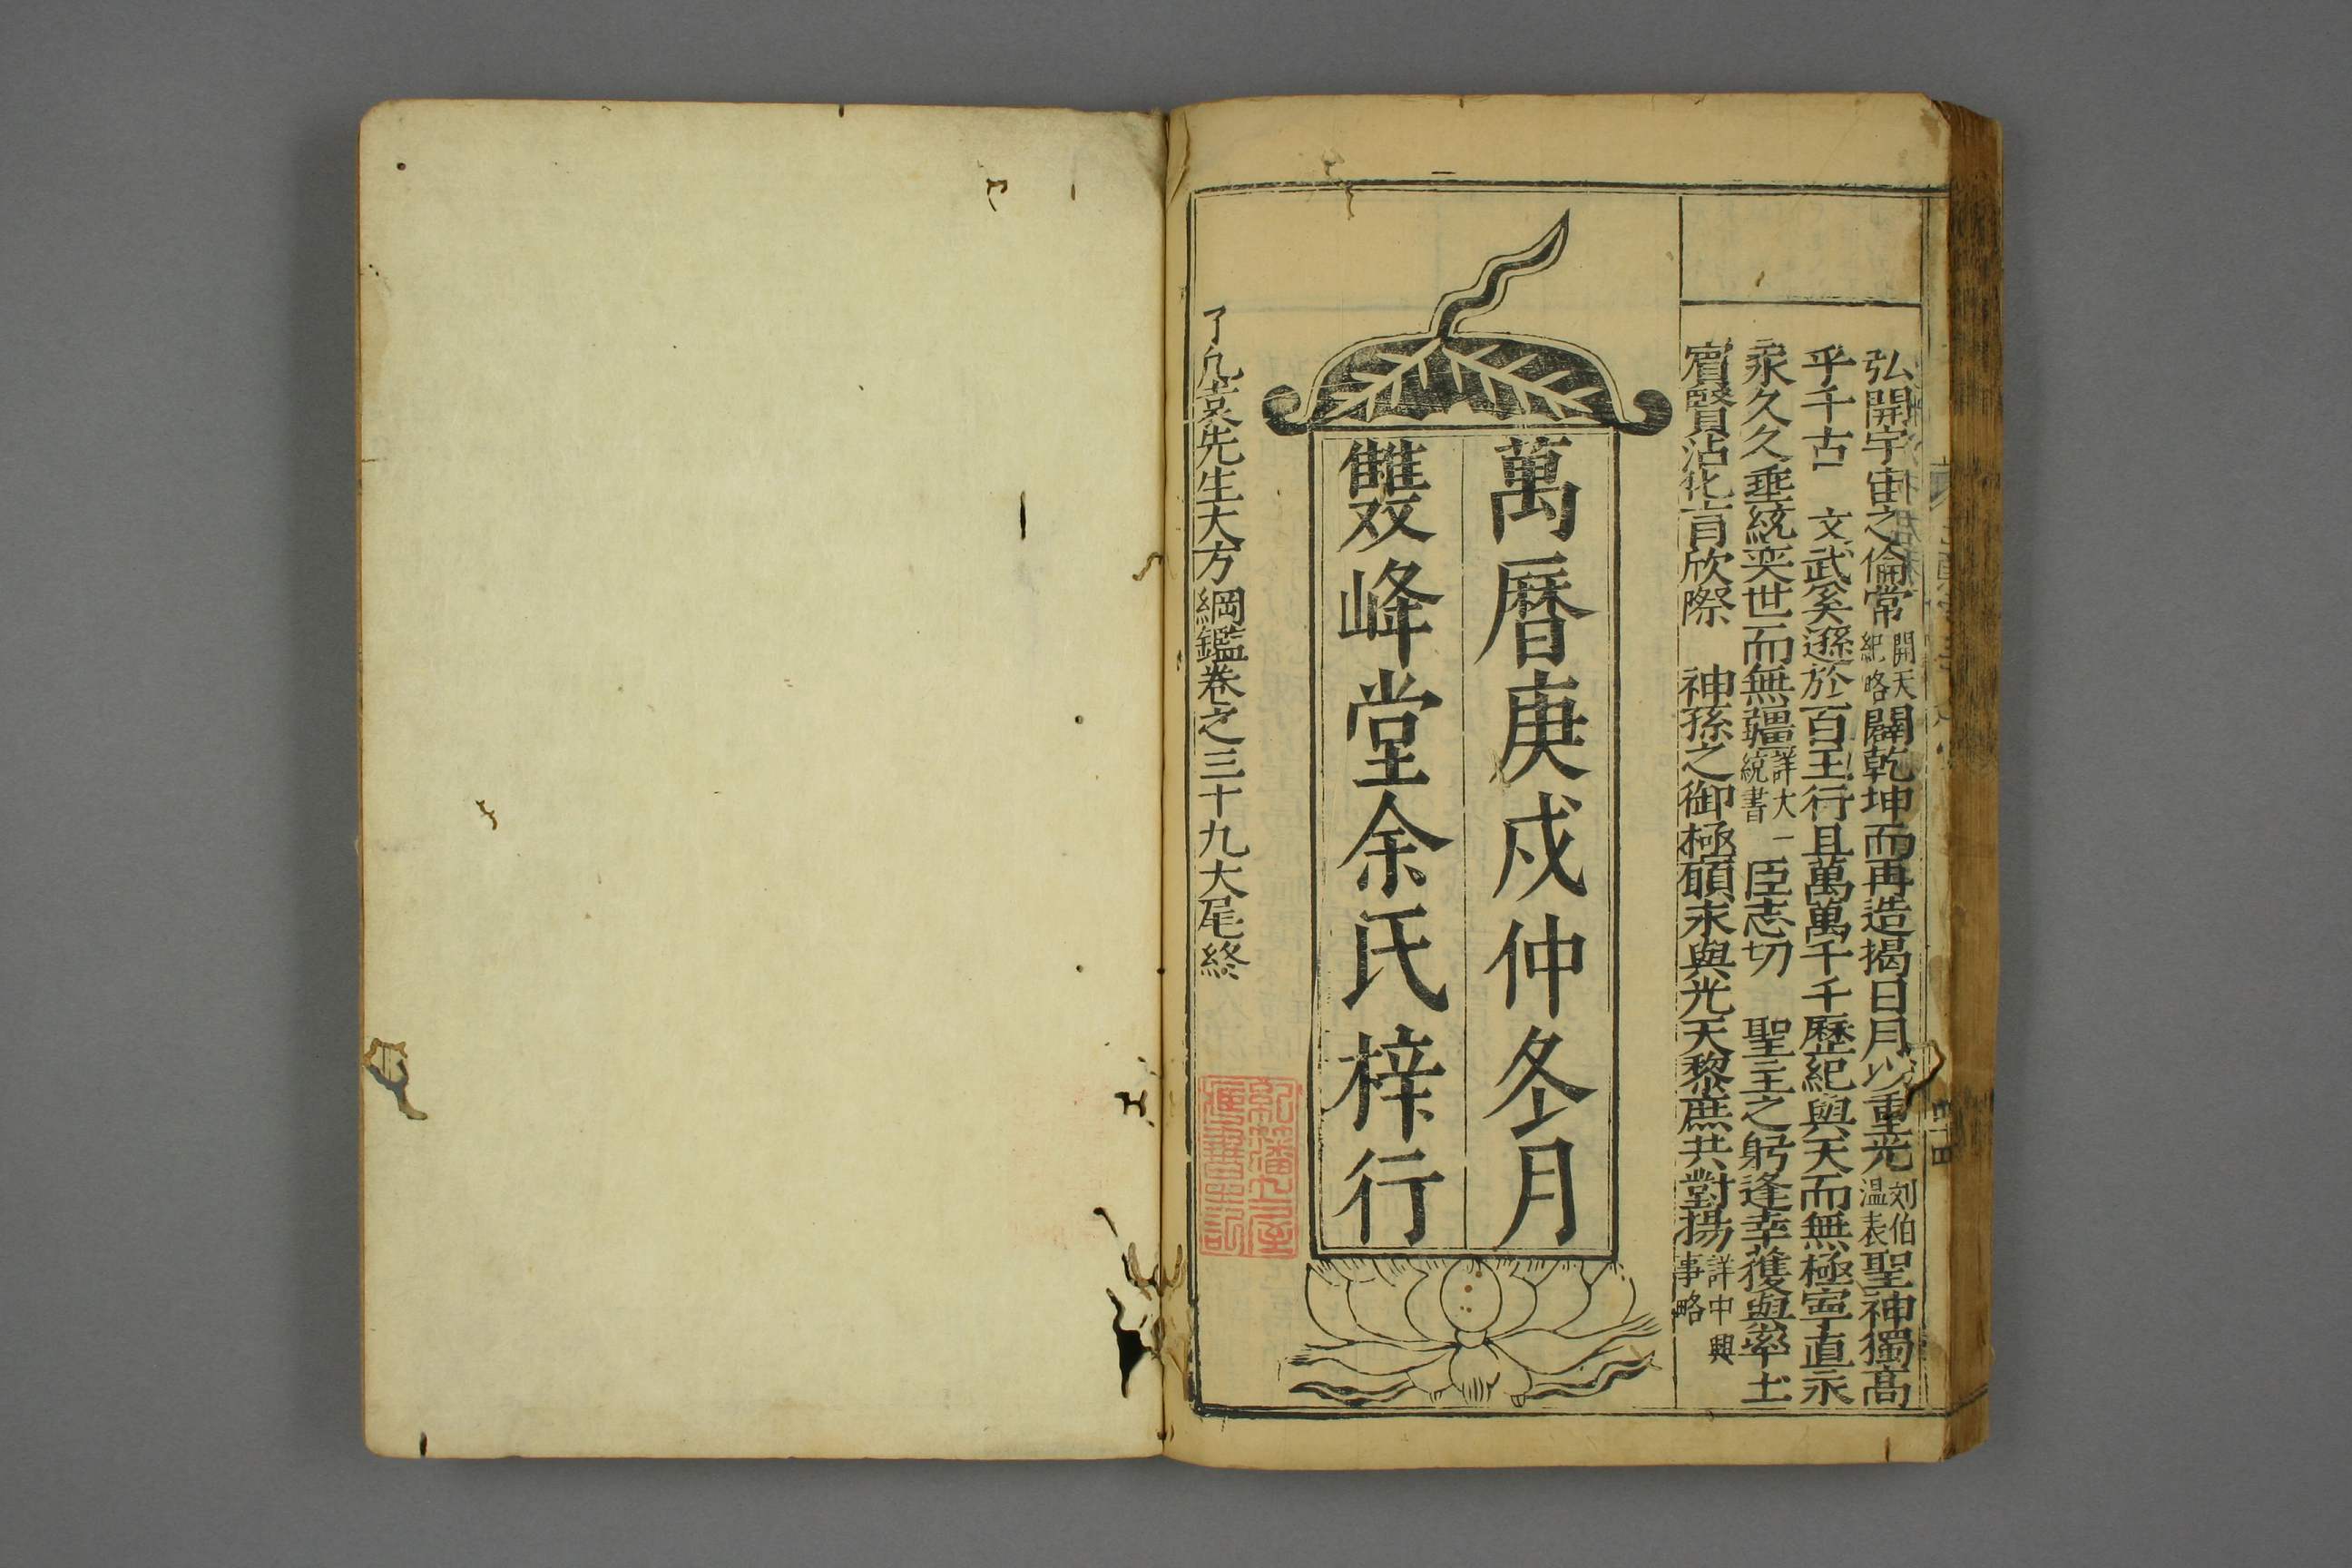 弘開宇宙之倫常開天紀略闢乾坤而再造揭日月以重光刘伯温表聖神獨高
乎千古 文武奚遜於百王行且萬萬千千歷紀與天而無極寧直永
永久久垂統奕世而無疆詳大一統書臣志切 聖主之躬逢幸獲與率土
賓賢沾化育欣際 神孫之御極願求與光天黎庶共對揚詳中興事略
萬曆庚戌仲冬月
雙峰堂余氏梓行
了凡袁先生大方綱鑑卷之三十九大尾終